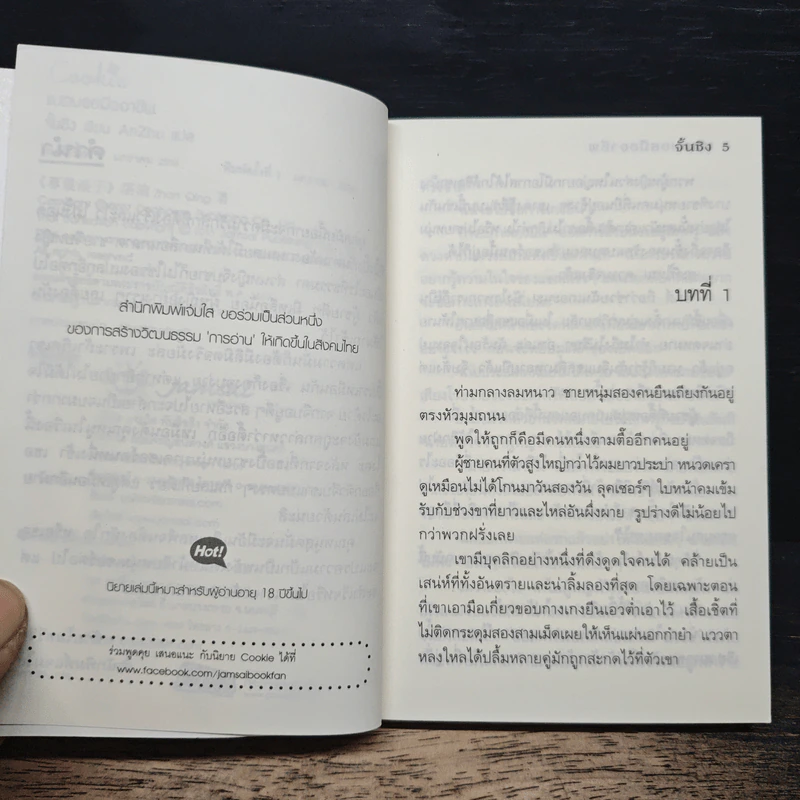 สำนักพิมพ์แจ่มใส ขอร่วมเป็นส่วนหนึ่ง
ของการสร้างวัฒนธรรม 'การอ่าน' ให้เกิดขึ้นในสังคมไทย
Hot!
นิยายเล่มนี้เหมาะสำหรับผู้อ่านอายุ 18 ปีขึ้นไป
ร่วมพูดคุย เสนอแนะ กับนิยาย Cookie ได้ที่
www.facebook.com/jamsaibookfan
จั้นชิง 5
บทที่ 1
ท่ามกลางลมหนาว ชายหนุ่มสองคนยืนเถียงกันอยู่
ตรงหัวมุมถนน
พูดให้ถูกก็คือมีคนหนึ่งตามตื๊ออีกคนอยู่
ผู้ชายคนที่ตัวสูงใหญ่กว่าไว้ผมยาวประบ่า หนวดเครา
ดูเหมือนไม่ได้โกนมาวันสองวัน ลุคเซอร์ๆ ใบหน้าคมเข้ม
รับกับช่วงขาที่ยาวและไหล่อันผึ่งผาย รูปร่างดีไม่น้อยไป
กว่าพวกฝรั่งเลย
เขามีบุคลิกอย่างหนึ่งที่ดึงดูดใจคนได้ คล้ายเป็น
เสน่ห์ที่ทั้งอันตรายและน่าลิ้มลองที่สุด โดยเฉพาะตอน
ที่เขาเอามือเกี่ยวขอบกางเกงยีนเอวต่ำเอาไว้ เสื้อเชิ้ตที่
ไม่ติดกระดุมสองสามเม็ดเผยให้เห็นแผ่นอกกำยำ แววตา
หลงใหลได้ปลื้มหลายคู่มักถูกสะกดไว้ที่ตัวเขา